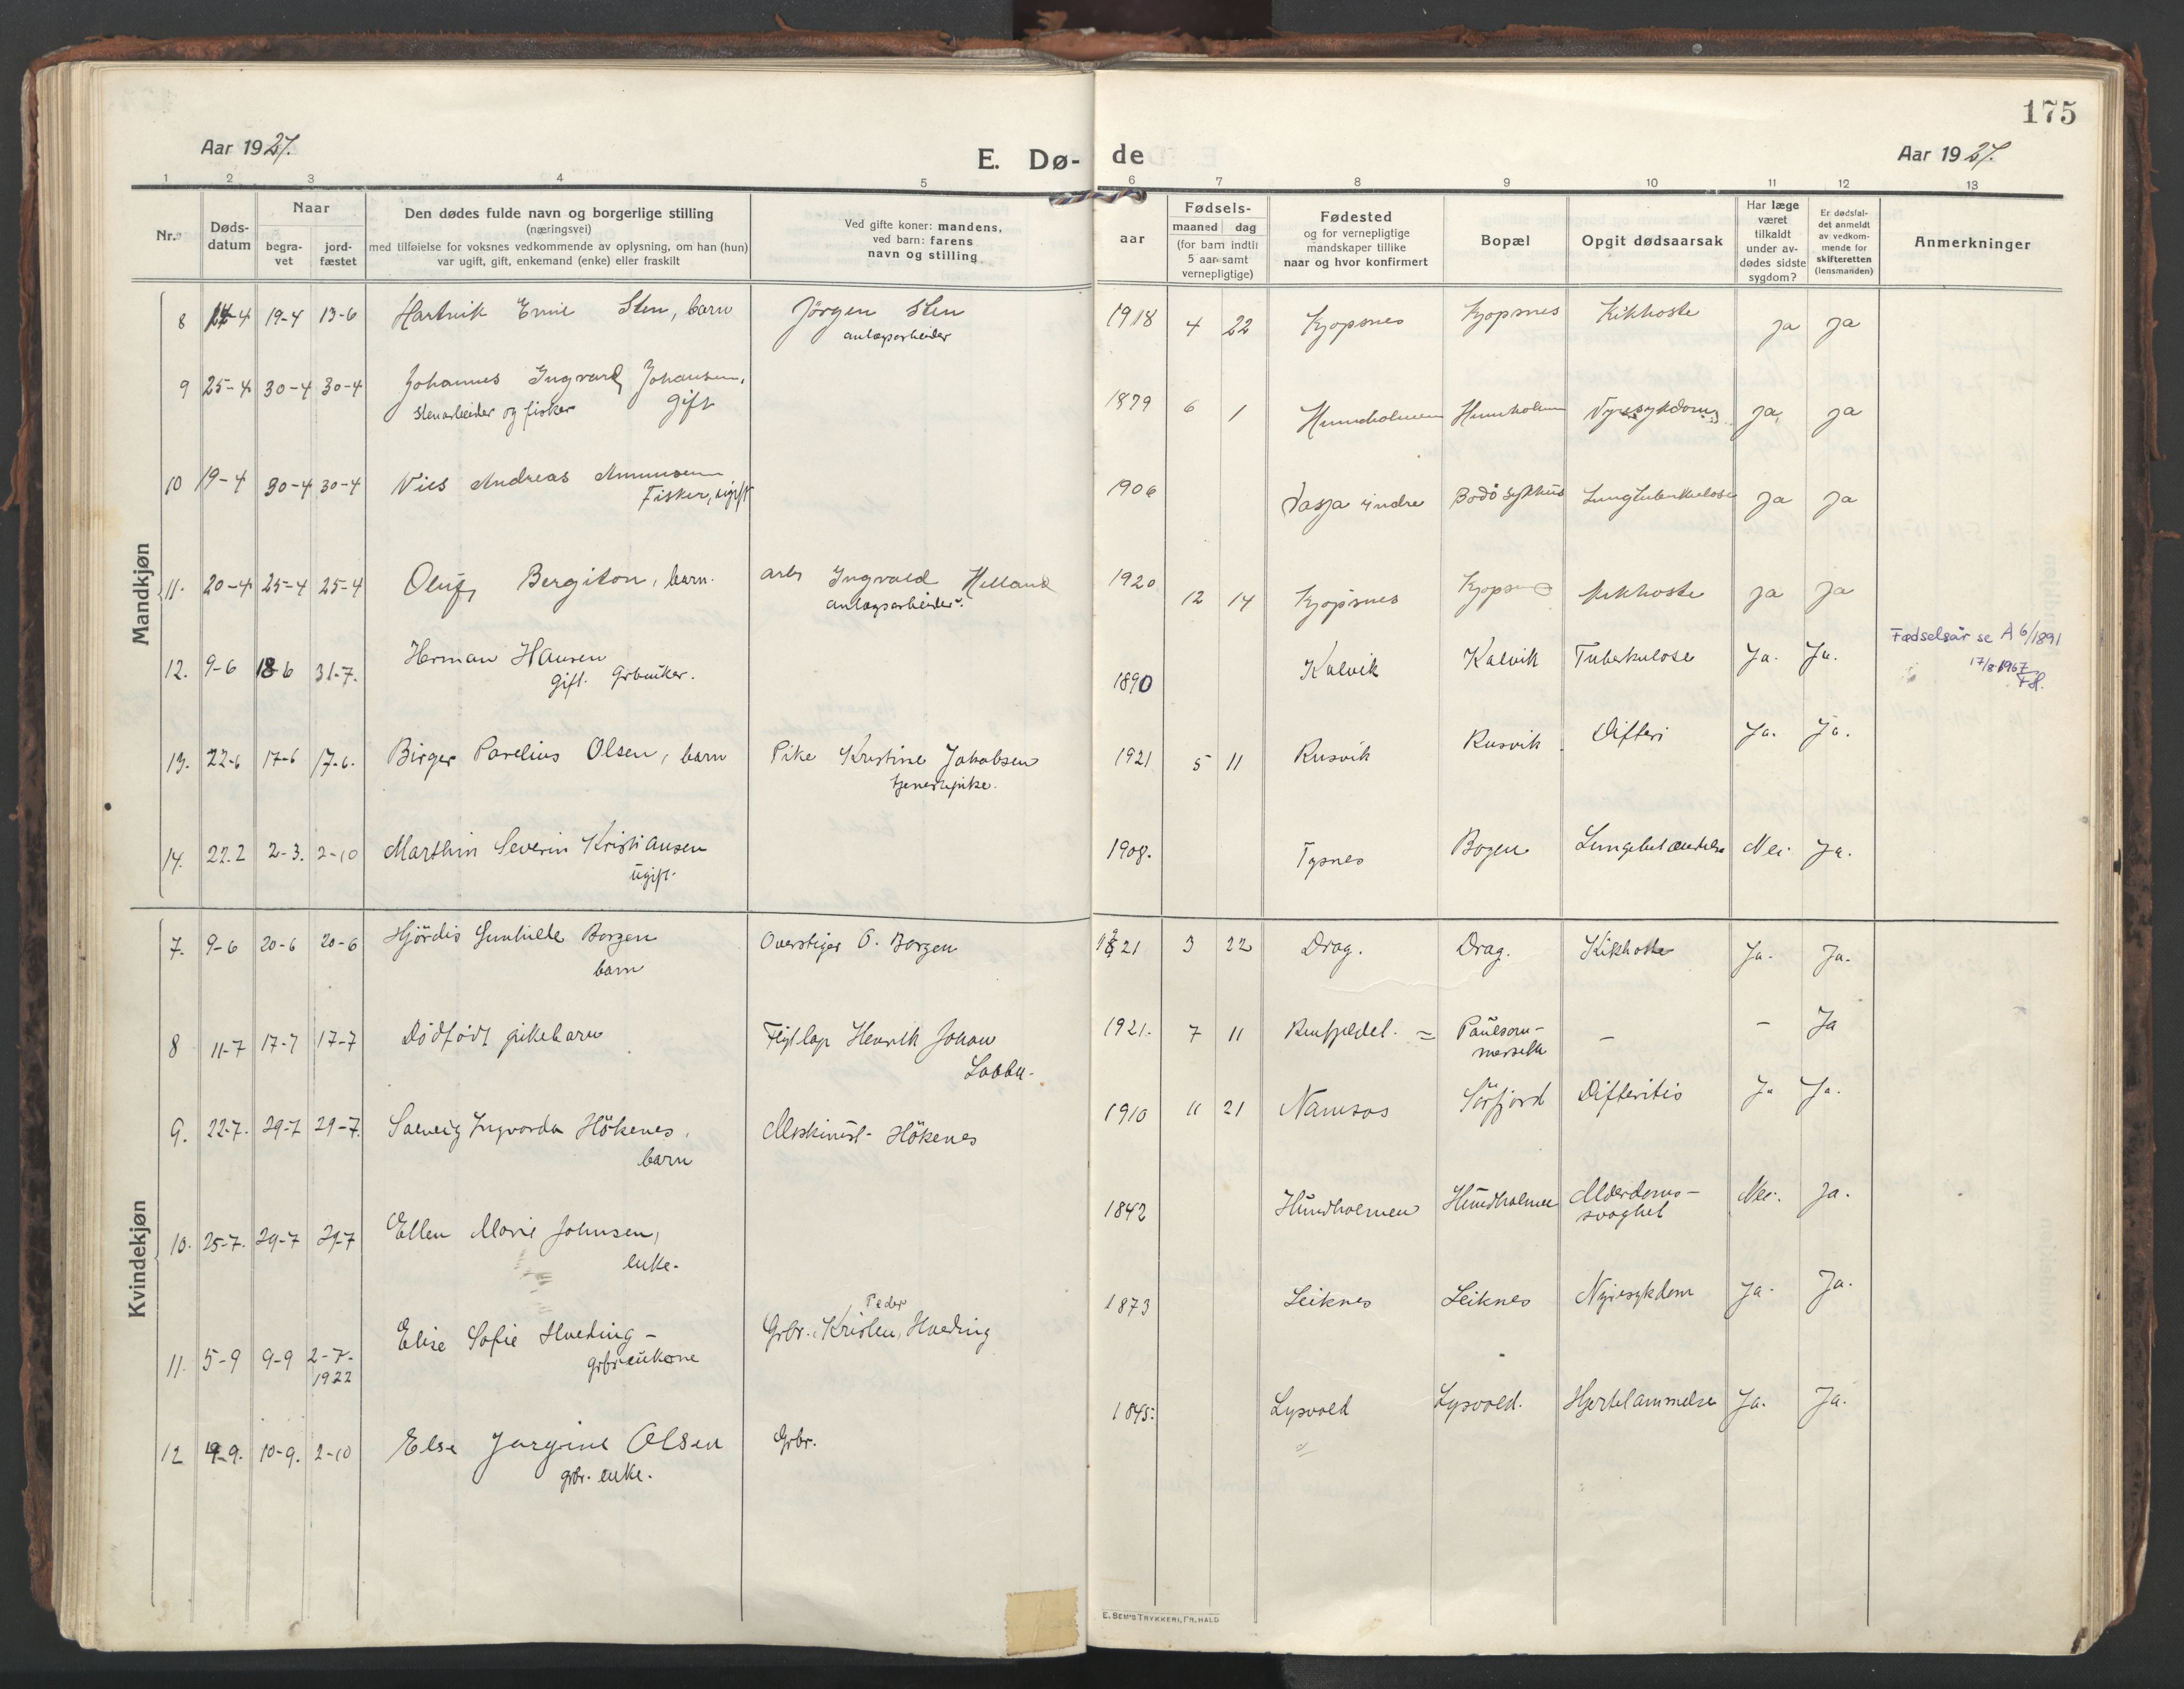 175
Aar 1921.
E. Dø-
de
Aar 1921.
1 2 3 4 5 6 7 8 9 10 11 12 13
Nr.
Døds-
datum
Naar
begra-
vet
jord-
fæstet
Den dødes fulde navn og borgerlige stilling
(næringsvei)
med tilføielse for voksnes vedkommende av oplysning, om han (hun)
var ugift, gift, enkemand (enke) eller fraskilt
Ved gifte koner: mandens,
ved barn: farens
navn og stilling
aar
Fødsels-
maaned dag
(for barn indtil
5 aar samt
vernepligtige)
Fødested
og for vernepligtige
mandskaper tillike
naar og hvor konfirmert
Bopæl
Opgit dødsaarsak
Har læge
været
tilkaldt
under av-
dødes sidste
sygdom?
Er dødsfal-
det anmeldt
av vedkom-
mende for
skifteretten
(lensmanden)
Anmerkninger
Mandkjøn
8 14-4 19-4 13-6 Hartvik Emil Sten, barn Jörgen Sten 1918 4 22 Kjøpsnes Kjøpsnes Kikhoste Ja Ja
anlægsarbeider
9 25-4 30-4 30-4 Johannes Ingvard Johansen, 1879 6 1 Hundholmen Hundholmen Nyresykdom Ja Ja
Stenarbeider og fisker gift
10 19-4 30-4 30-4 Nils Andreas Amundsen 1906 indre Bodö sykehus Lungtuberkulose Ja Ja
Fisker, ugift
11. 20-4 25-4 25-4 Oluf Bergiton, barn. arb. Ingvald Helland 1920 12 14 Kjøpsnes Kjøpsnes Kikhoste Ja Ja
anlægsarbeider.
12. 9-6 18-6 31-7. Herman Hansen 1890 Kalvik Kalvik Tuberkulose Ja. Ja. Fødselsår se A 6/1891
gift. Grbruker. 17/8 1967
13. 22-6 17-6 17-6. Birger Parelius Olsen, barn Pike Kristine Jakobsen 1921 5 11 Rusvik Rusvik Difteri Ja. Ja.
tjenestepike.
14. 22.2 2-3. 2-10 Marthin Severin Kristiansen 1908. Tysnes Bogen Lungebetændelse Nei Ja.
ugift.
Kvindekjøn
7. 9-6 20-6 20-6 Hjördis Gunhilde Borgen Overstiger O. Borgen 1921 3 22 Drag. Drag. Kikhoste Ja. Ja.
barn
8 11-7 17-7 17-7 Dödfödt pikebarn Flytlap Henrik Johan 1921. 7 11 = Paulsom- – – Ja
Labba.
9. 22-7. 29-7 29-7. Solveig Ingvarda Hökenes, Maskinist- Hökenes 1910 11 21 Namsos Sörfjord Difteritis Ja Ja.
barn
10. 25-7. 29-7 29-7 Ellen Marie Johnsen, 1842 Hundholmen Hundholmen Alderdoms- Nei. Ja.
enke. svaghet
11. 5-9 9-9 2-7- Elise Sofie Hveding – Grbr. Kristen Peder Hveding 1873 Leiknes Leiknes Nyresykdom Ja. Ja.
1922 grbrukone
12 9-9. 10-9. 2-10 Else Jørgine Olsen Grbr. 1845. Lysvold Lysvold. Hjertelammelse Ja. Ja.
grbr. enke.
E. SEM'S TRYKKERI, FR.HALD